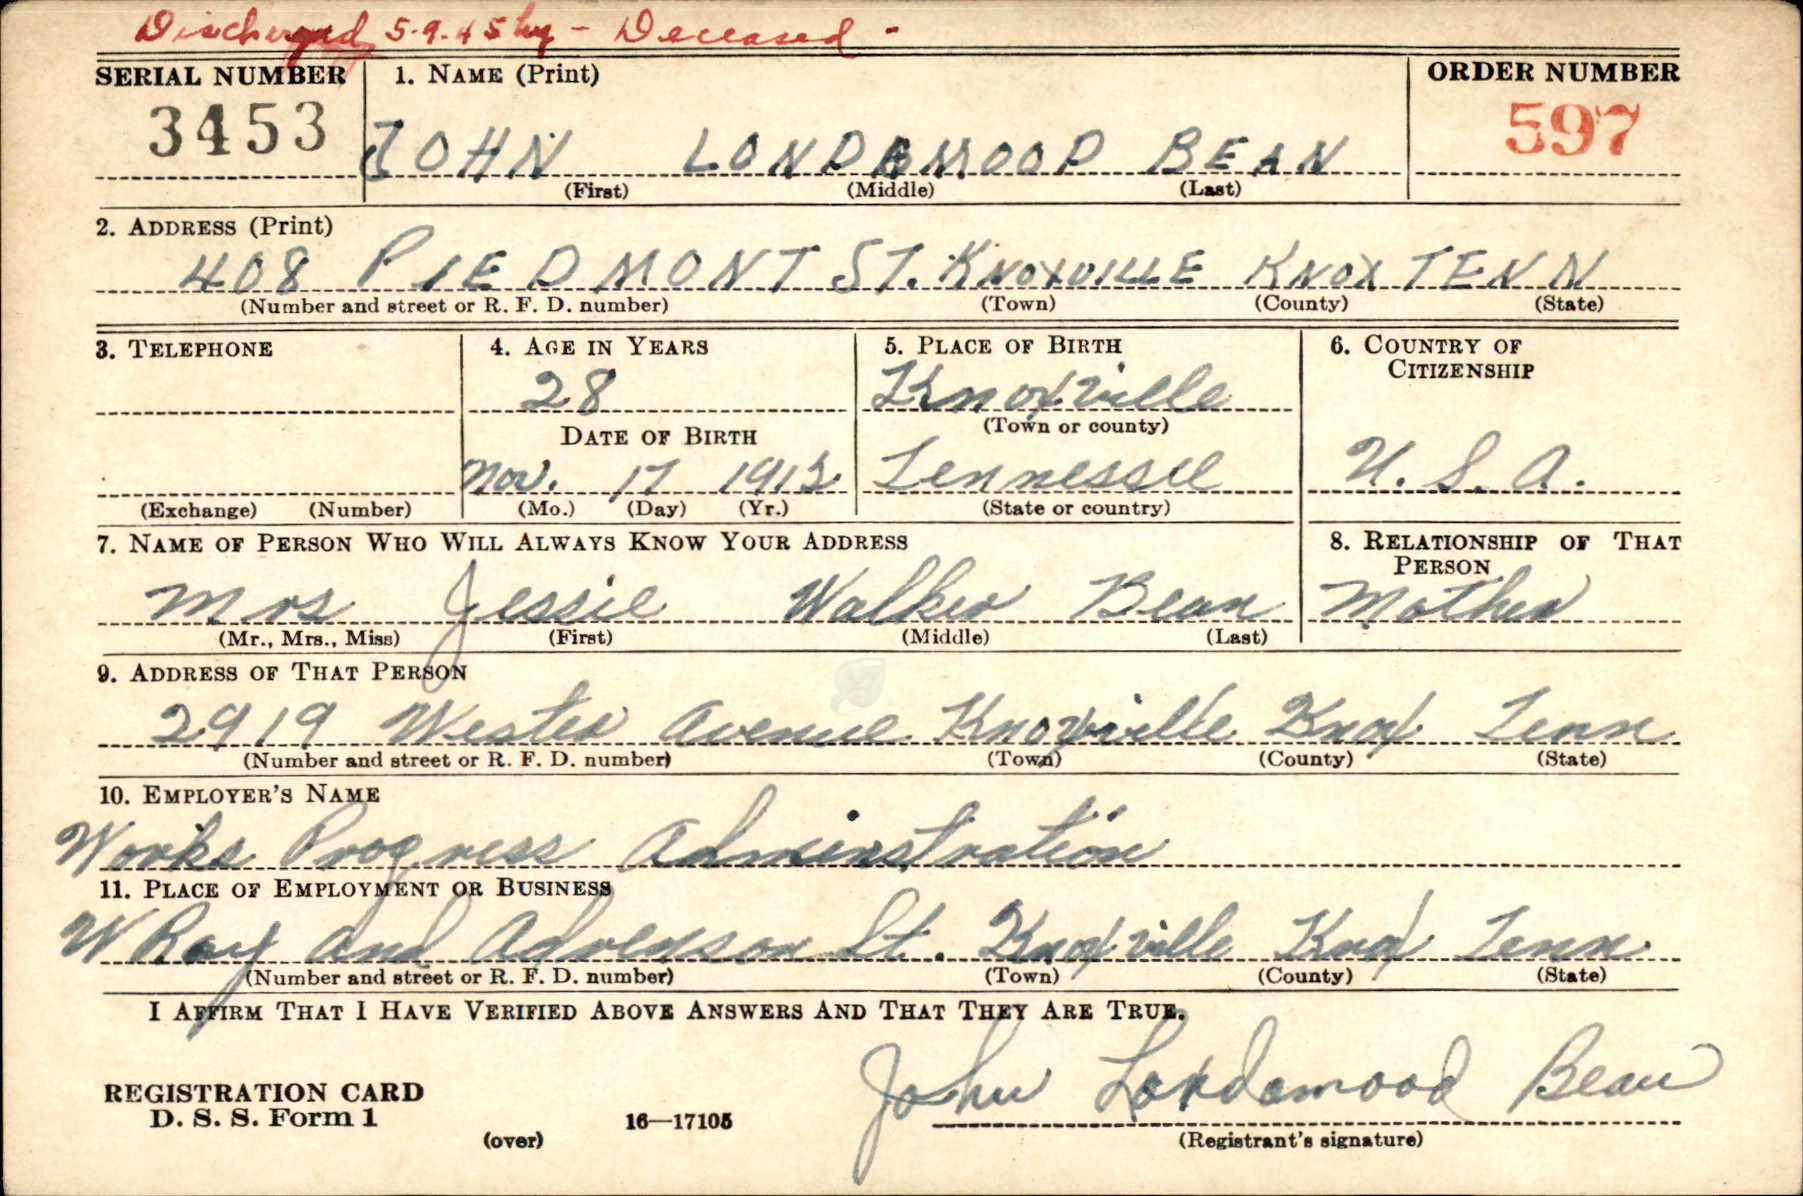 Discharged 5-9-45 by - Deceased -
SERIAL NUMBER 1. NAME (Print) ORDER NUMBER
3453 JOHN LONDAMOOD BEAN 597
(First) (Middle) (Last)
2. ADDRESS (Print)
408 PIEDMONT ST. KNOXVILLE KNOX TENN
(Number and street or R. F. D. number) (Town) (County) (State)
3. TELEPHONE 4. AGE IN YEARS 5. PLACE OF BIRTH 6. COUNTRY OF CITIZENSHIP
28 Knoxville
(Town or county)
DATE OF BIRTH
Nov. 17 1912 Tennessee U. S. A.
(Exchange) (Number) (Mo.) (Day) (Yr.) (State or country)
7. NAME OF PERSON WHO WILL ALWAYS KNOW YOUR ADDRESS 8. RELATIONSHIP OF THAT PERSON
Mrs Jessie Walker Bean Mother
(Mr., Mrs., Miss) (First) (Middle) (Last)
9. ADDRESS OF THAT PERSON
2919 Wester Avenue Knoxville Knox Tenn
(Number and street or R. F. D. number) (Town) (County) (State)
10. EMPLOYER'S NAME
Works Progress Adminstration
11. PLACE OF EMPLOYMENT OR BUSINESS
W Ray and St. Knoxville Knox Tenn.
(Number and street or R. F. D. number) (Town) (County) (State)
I AFFIRM THAT I HAVE VERIFIED ABOVE ANSWERS AND THAT THEY ARE TRUE.
John Londamood Bean
REGISTRATION CARD
D. S. S. Form 1 16—17105
(over) (Registrant's signature)